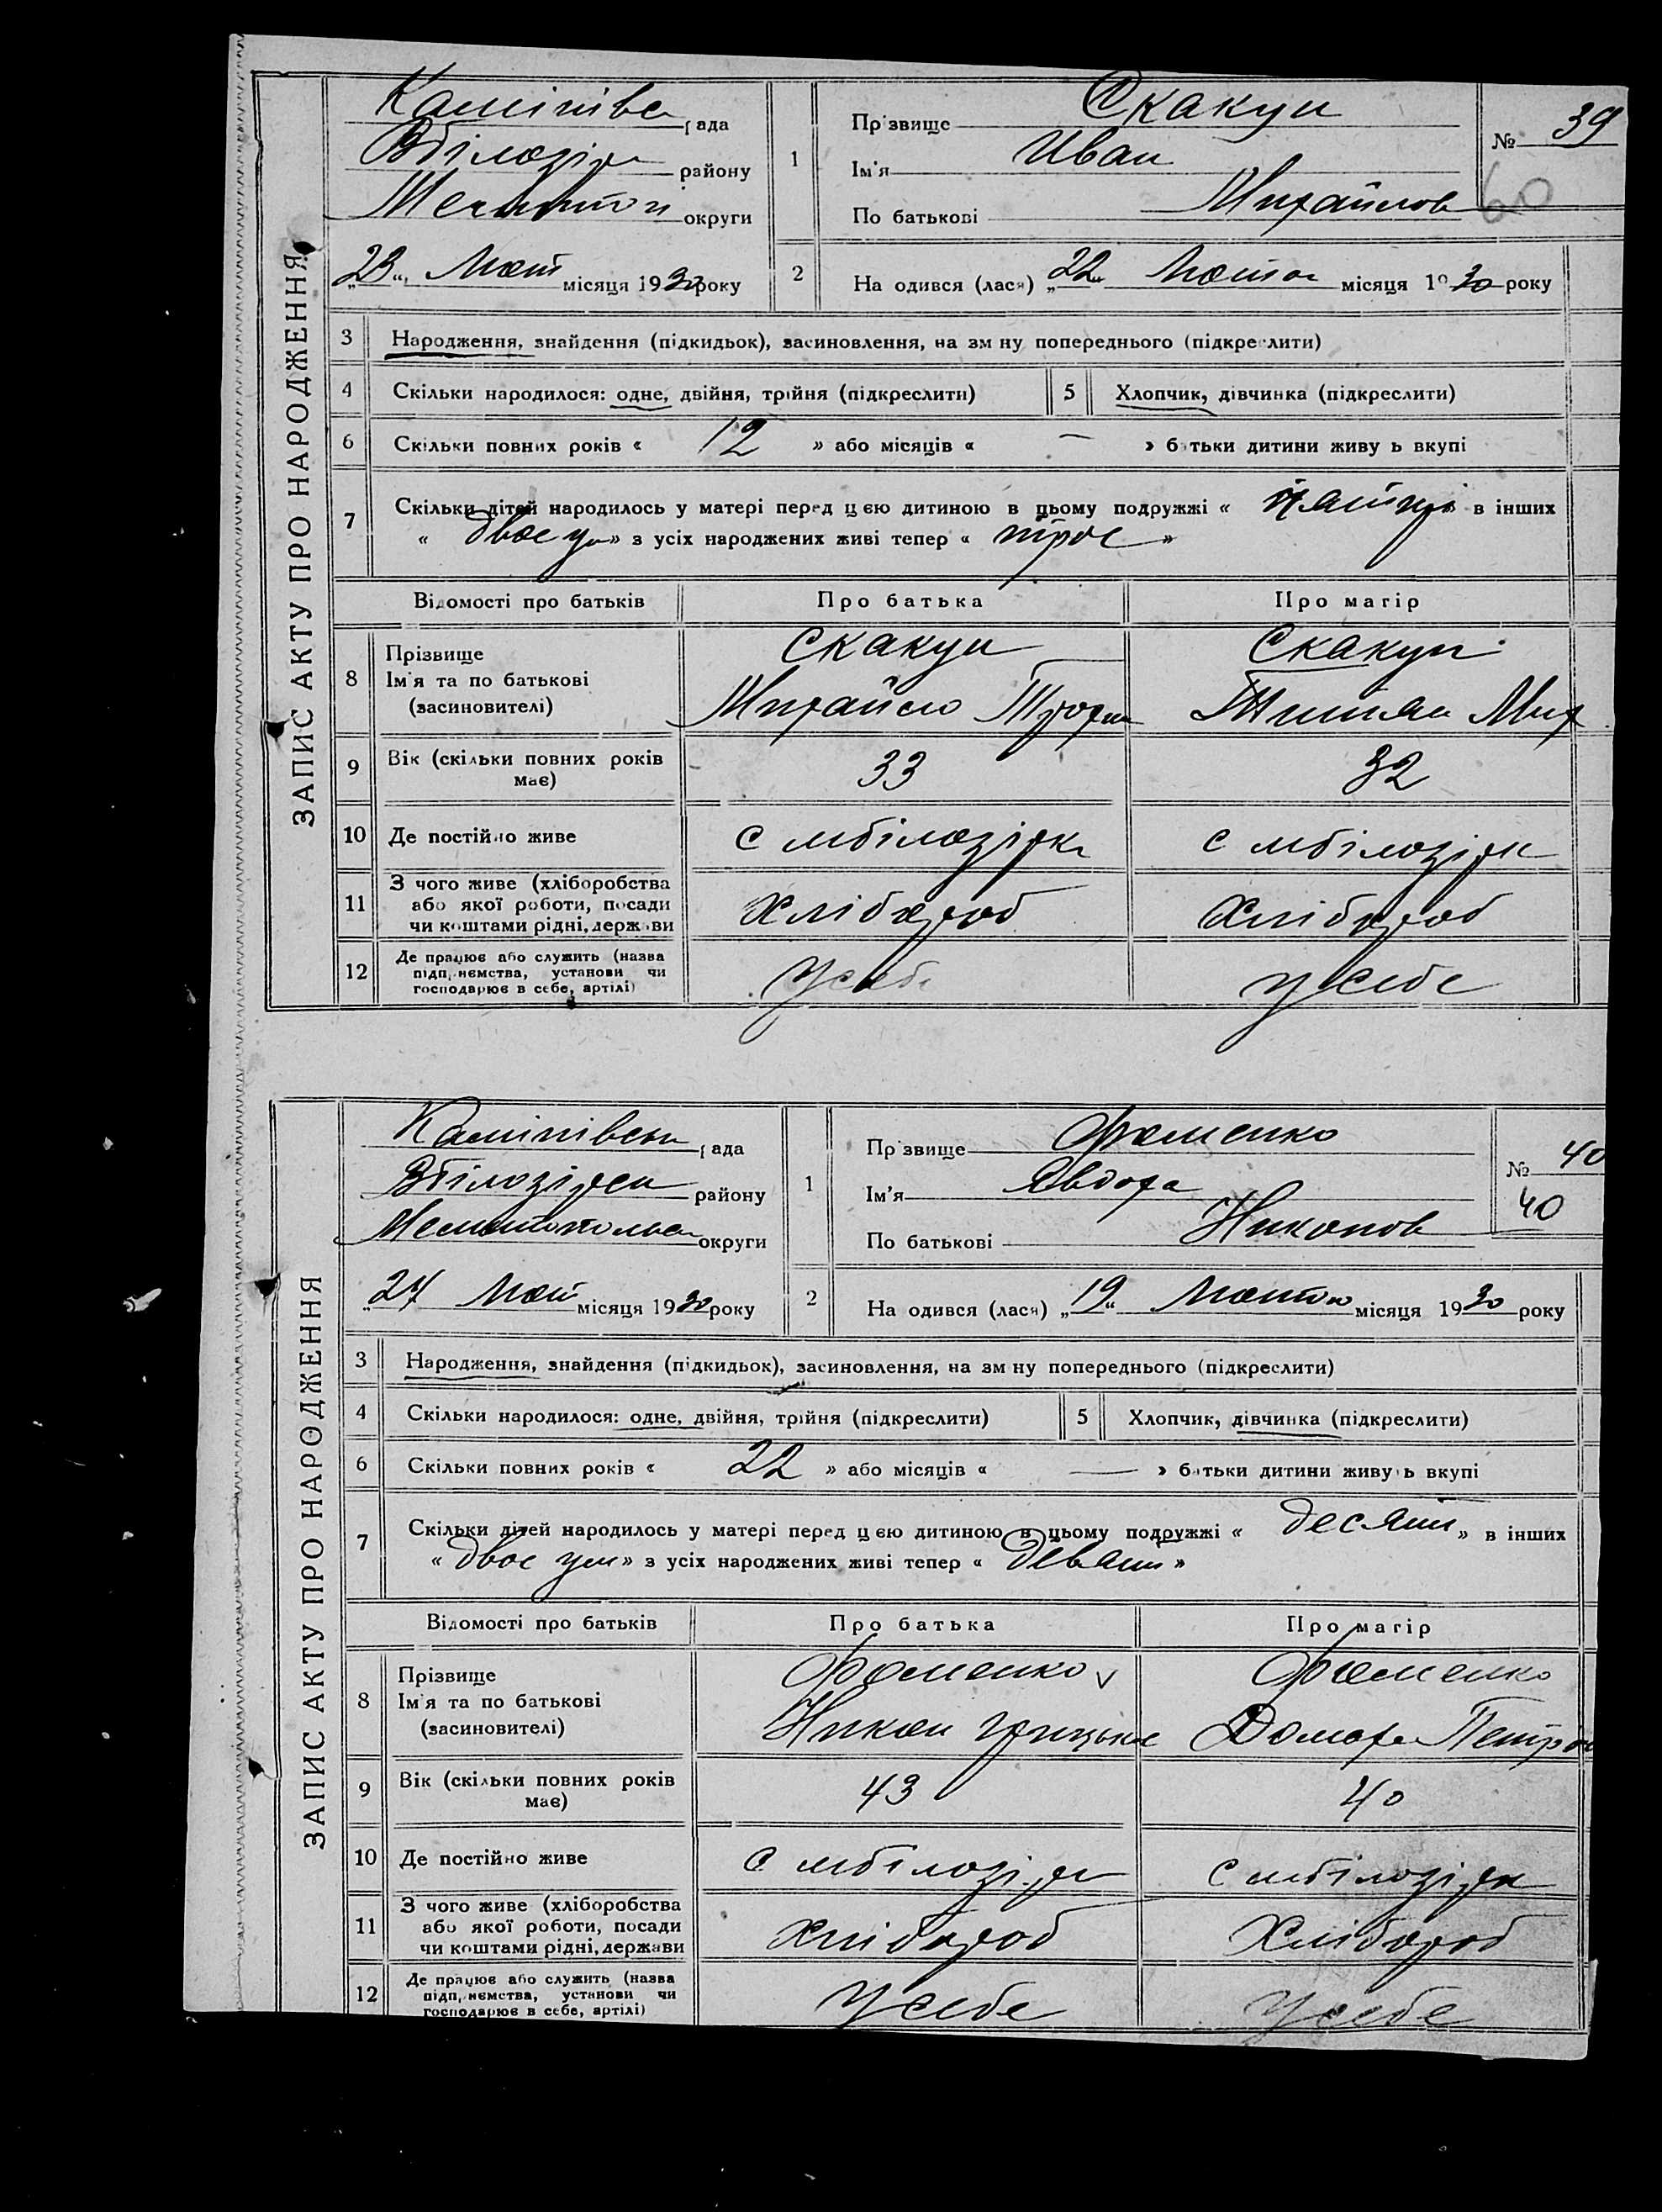 ЗАПИС АКТУ ПРО НАРОДЖЕННЯ
рада
району
округи
„23“ Лют місяця 1930 року
1
Прізвище Скакун
Ім'я Иван
По батькові Михайлов
№ 39
60
2
Народився (лася) „22“ Лютого місяця 1930 року
3 Народження, знайдення (підкидьок), засиновлення, на зміну попереднього (підкреслити)
4 Скільки народилося: одне, двійня, трійня (підкреслити)
5 Хлопчик, дівчинка (підкреслити)
6 Скільки повних років « 12 » або місяців « — » батьки дитини живуть вкупі
7 Скільки дітей народилось у матері перед цею дитиною в цьому подружжі « в інших
« двое ум» з усіх народжених живі тепер « трое »
Відомості про батьків Про батька Про матір
8 Прізвище Скакун Скакун
Ім'я та по батькові
(засиновителі) Михайло Трофим Мих
9 Вік (скільки повних років має) 33 32
10 Де постійно живе с мбілозірка с мбілозірк
11 З чого живе (хліборобства
або якої роботи, посади
чи коштами рідні, держави Хлібороб Хлібороб
12 Де працює або служить (назва
підприємства, установи чи
господарює в себе, артілі) У себе у себе
ЗАПИС АКТУ ПРО НАРОДЖЕННЯ
рада
Вбілозірськ району
Мелитопольск округи
„24 Лют місяця 1930 року
1
Прізвище Фоменко
Ім'я Явдоха
По батькові Никонов
№ 40
40
2
Народився (лася) „19“ Лютого місяця 1930 року
3 Народження, знайдення (підкидьок), засиновлення, на зміну попереднього (підкреслити)
4 Скільки народилося: одне, двійня, трійня (підкреслити)
5 Хлопчик, дівчинка (підкреслити)
6 Скільки повних років « 22 » або місяців « — » батьки дитини живуть вкупі
7 Скільки дітей народилось у матері перед цею дитиною в цьому подружжі « десять » в інших
« двое ум» з усіх народжених живі тепер « девять »
Відомості про батьків Про батька Про матір
8 Прізвище Фоменко Фоменко
Ім'я та по батькові
(засиновителі) Никон Грицьков Домаха Петров
9 Вік (скільки повних років має) 43 40
10 Де постійно живе с мбілозірк с мбілозірк
11 З чого живе (хліборобства
або якої роботи, посади
чи коштами рідні, держави Хлібороб Хлібороб
12 Де працює або служить (назва
підприємства, установи чи
господарює в себе, артілі) У себе У себе